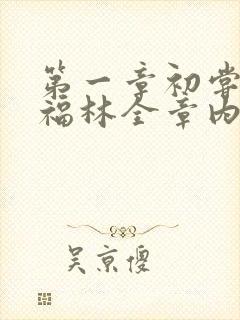 第一章初尝
福林全章内
吴京傻